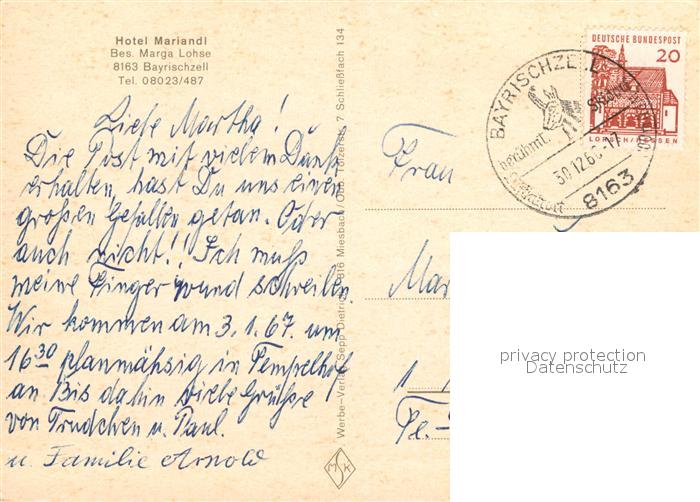 Hotel Mariandl
Bes. Marga Lohse
8163 Bayrischzell
Tel. 08023/487
Liebe Martha!
Die Post mit vielem Dank
erhalten, hast Du uns einen
großen Gefallen getan. Oder
auch nicht!! Ich muß
meine Finger wund schreiben.
Wir kommen am 3.1.67. um
16 30 planmäßig in Tempelhof
an. Bis dahin viele Grüße
von Trudchen u. Paul.
u. Familie Arnold
Werbe-Verlag Sepp Dietrich, 816 Miesbach/Obb. 7 Schließfach 134
MSK
Frau
DEUTSCHE BUNDESPOST
20
LORSCH/HESSEN
BAYRISCHZELL
berühmt.
30.12.66-17
8163
privacy protection
Datenschutz